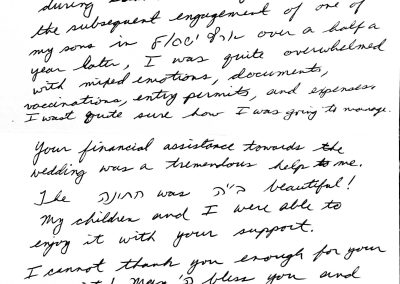 during
the subsequent engagement of one of
my sons in ארץ ישראל over a half a
year later, I was quite overwhelmed
with mixed emotions, documents,
vaccinations, entry permits, and expenses.
I wast quite sure how I was going to manage.
Your financial assistance towards the
wedding was a tremendous help to me.
The חתונה was ב"ה beautiful!
My children and I were able to
enjoy it with your support.
I cannot thank you enough for your
bless you and